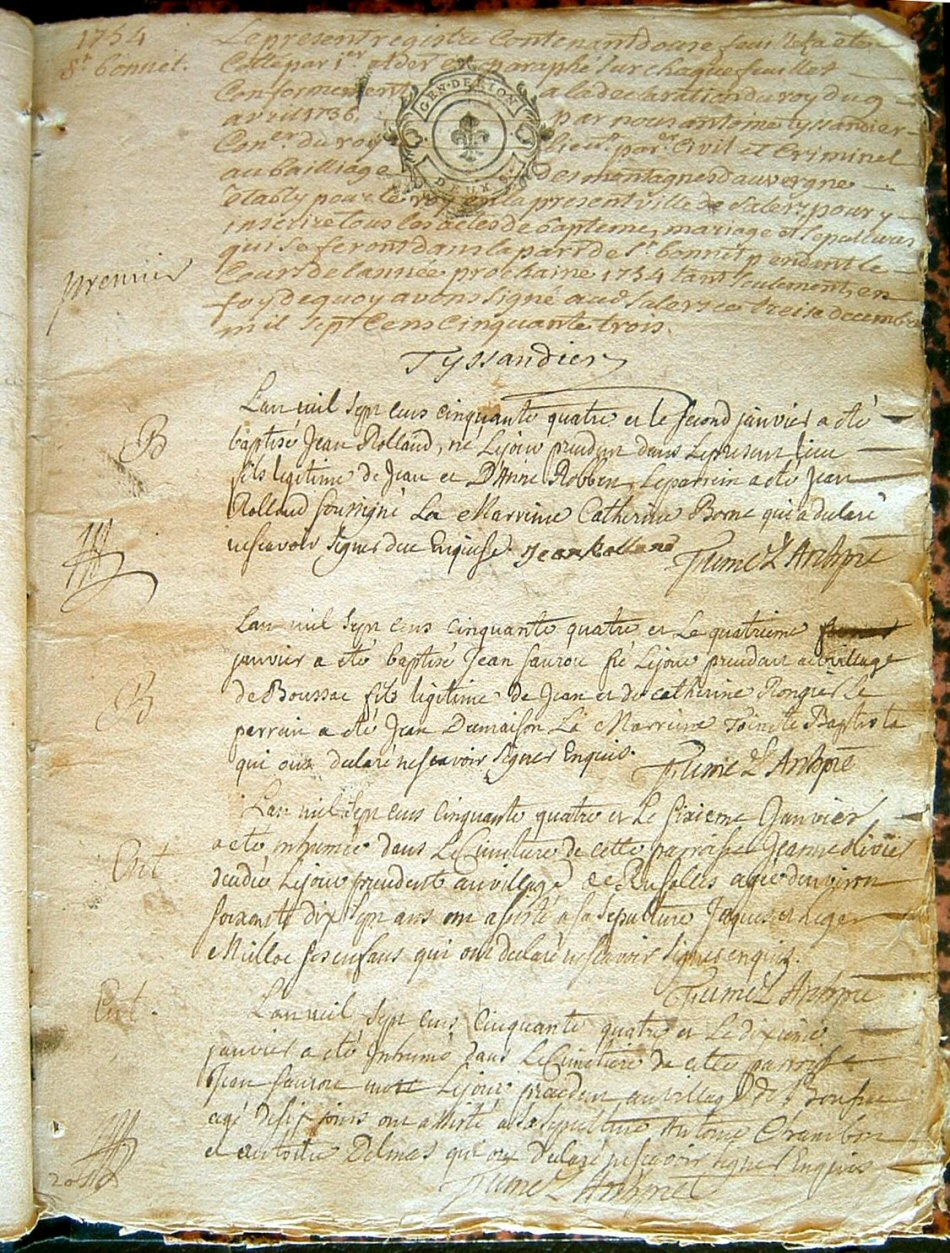 1754
St bonnet.
Le present registre Contenant douse feuillets a ete
Cotte par 1er et der et paraphé sur chaque feuillet
Conformement a la declaration du roy du 9
avril 1736. par nous antoine tyssandier
Coner. du roy lieut. par. Civil et Criminel
au bailliage des montagnes dauvergne
etably pour le roy en la presente ville de Salers, pour y
inscrire tous les actes de bapteme, mariage et sepultures
qui se feront dans la par. de St. bonnet pendant le
Cours de lannée prochaine 1754 tant seulement, en
foy de quoy avons signé aud. Salers ce treise decembre
mil sept Cens Cinquante trois.
premier
GEN. DE RION
DEUX S.
Tyssandier
B
Lan mil sept cens cinquante quatre et le second janvier a été
baptisé Jean Rolland, né Lejour precedent dans Lepresent lieu
fils legitime de Jean et D'Anne Robben, Leparrein a été Jean
Rolland soussigné La Marreine Catherine Borne qui a declaré
nescavoir signer de ce Enquise. Jean Rolland
B
Lan mil sept cens cinquante quatre et Le quatrieme
janvier a été baptisé Jean Saurou né Lejour precedent au village
de Boussac fils legitime de Jean et de catherine Rongier Le
parrein a été Jean Dumaison La Marreine Toinete Baptista
qui ont declaré nescavoir signer Enquis.
Ent.
Lan mil sept cens cinquante quatre et Le sixieme Janvier
a eté inhumée dans Le Cimitiere de cette parroisse Jeanne olivier
decedée Lejour precedent au village de agée denviron
soixante dix sept ans ont assisté a sa sepulture Jacques et Lege
Milloc ses enfans qui ont declaré nescavoir signer enquis.
Ent.
Lan mil sept cens Cinquante quatre et Le dixieme
janvier a été Inhumé dans Le Cimitiere de cette parroisse
Jean Saurou mort Lejour precedent au village de
agé de six jours ont assisté a sa sepulture Antoine Chambon
et Delmas qui ont declaré nescavoir signer Enquis